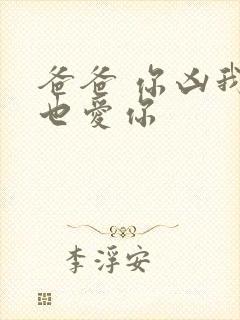 爸爸 你凶我
也爱你
李浮安